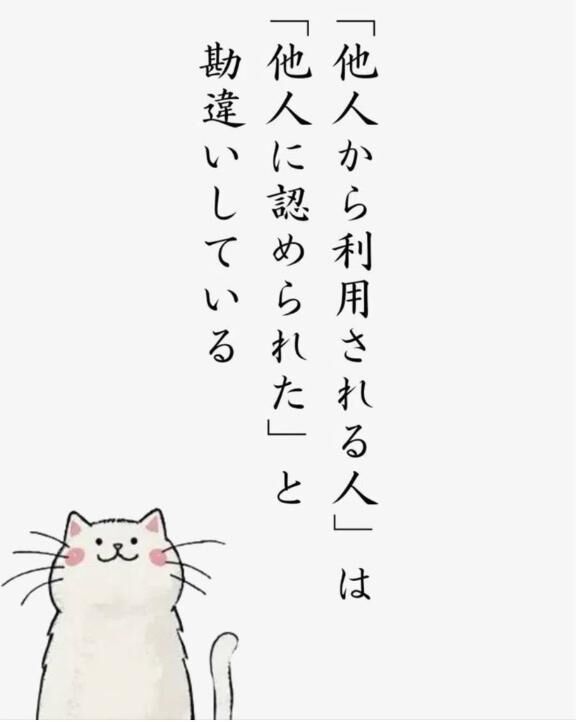 「他人から利用される人」は
「他人に認められた」と
勘違いしている